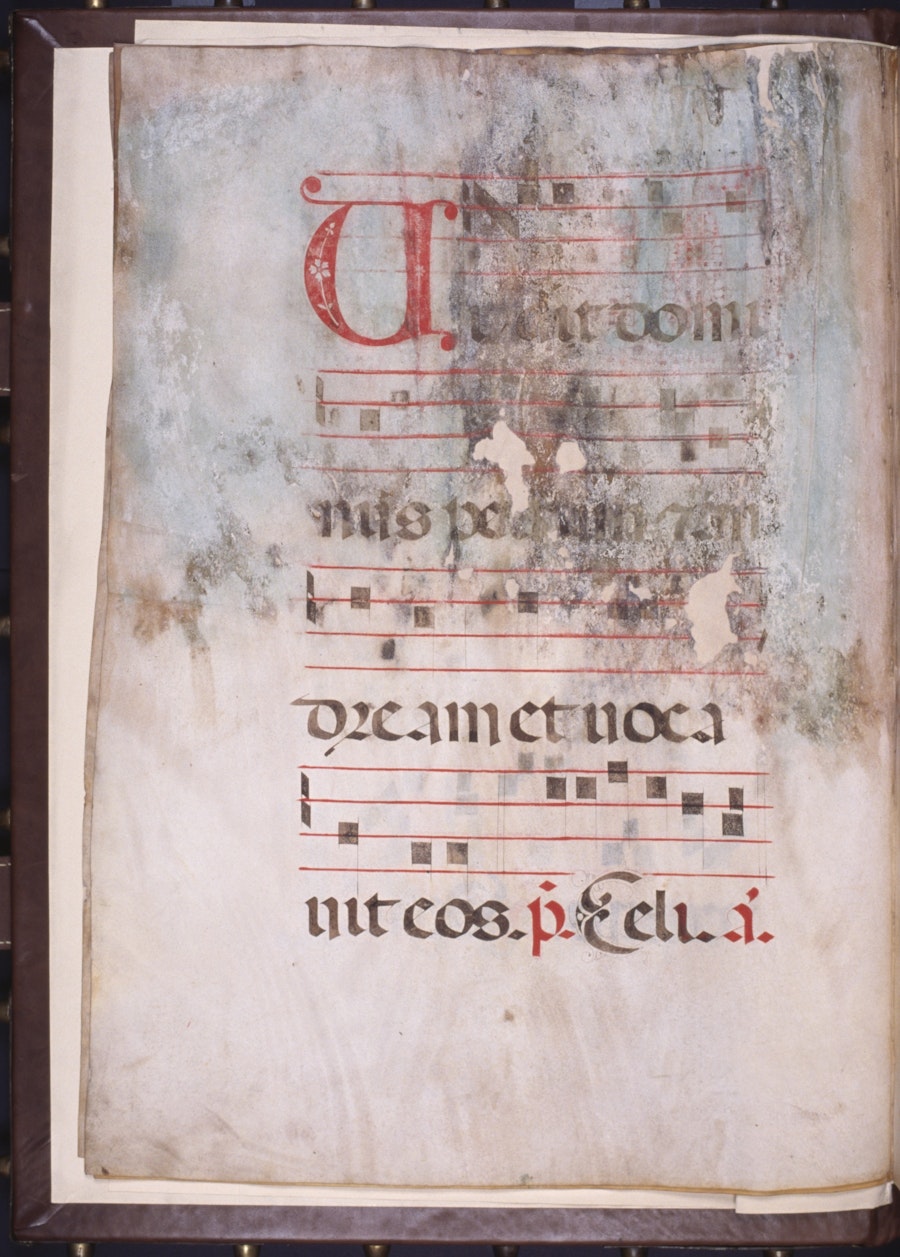 Uidit domi
nus petrum ⁊ an
dream et uoca
uit eos. p̄. Celi. a.